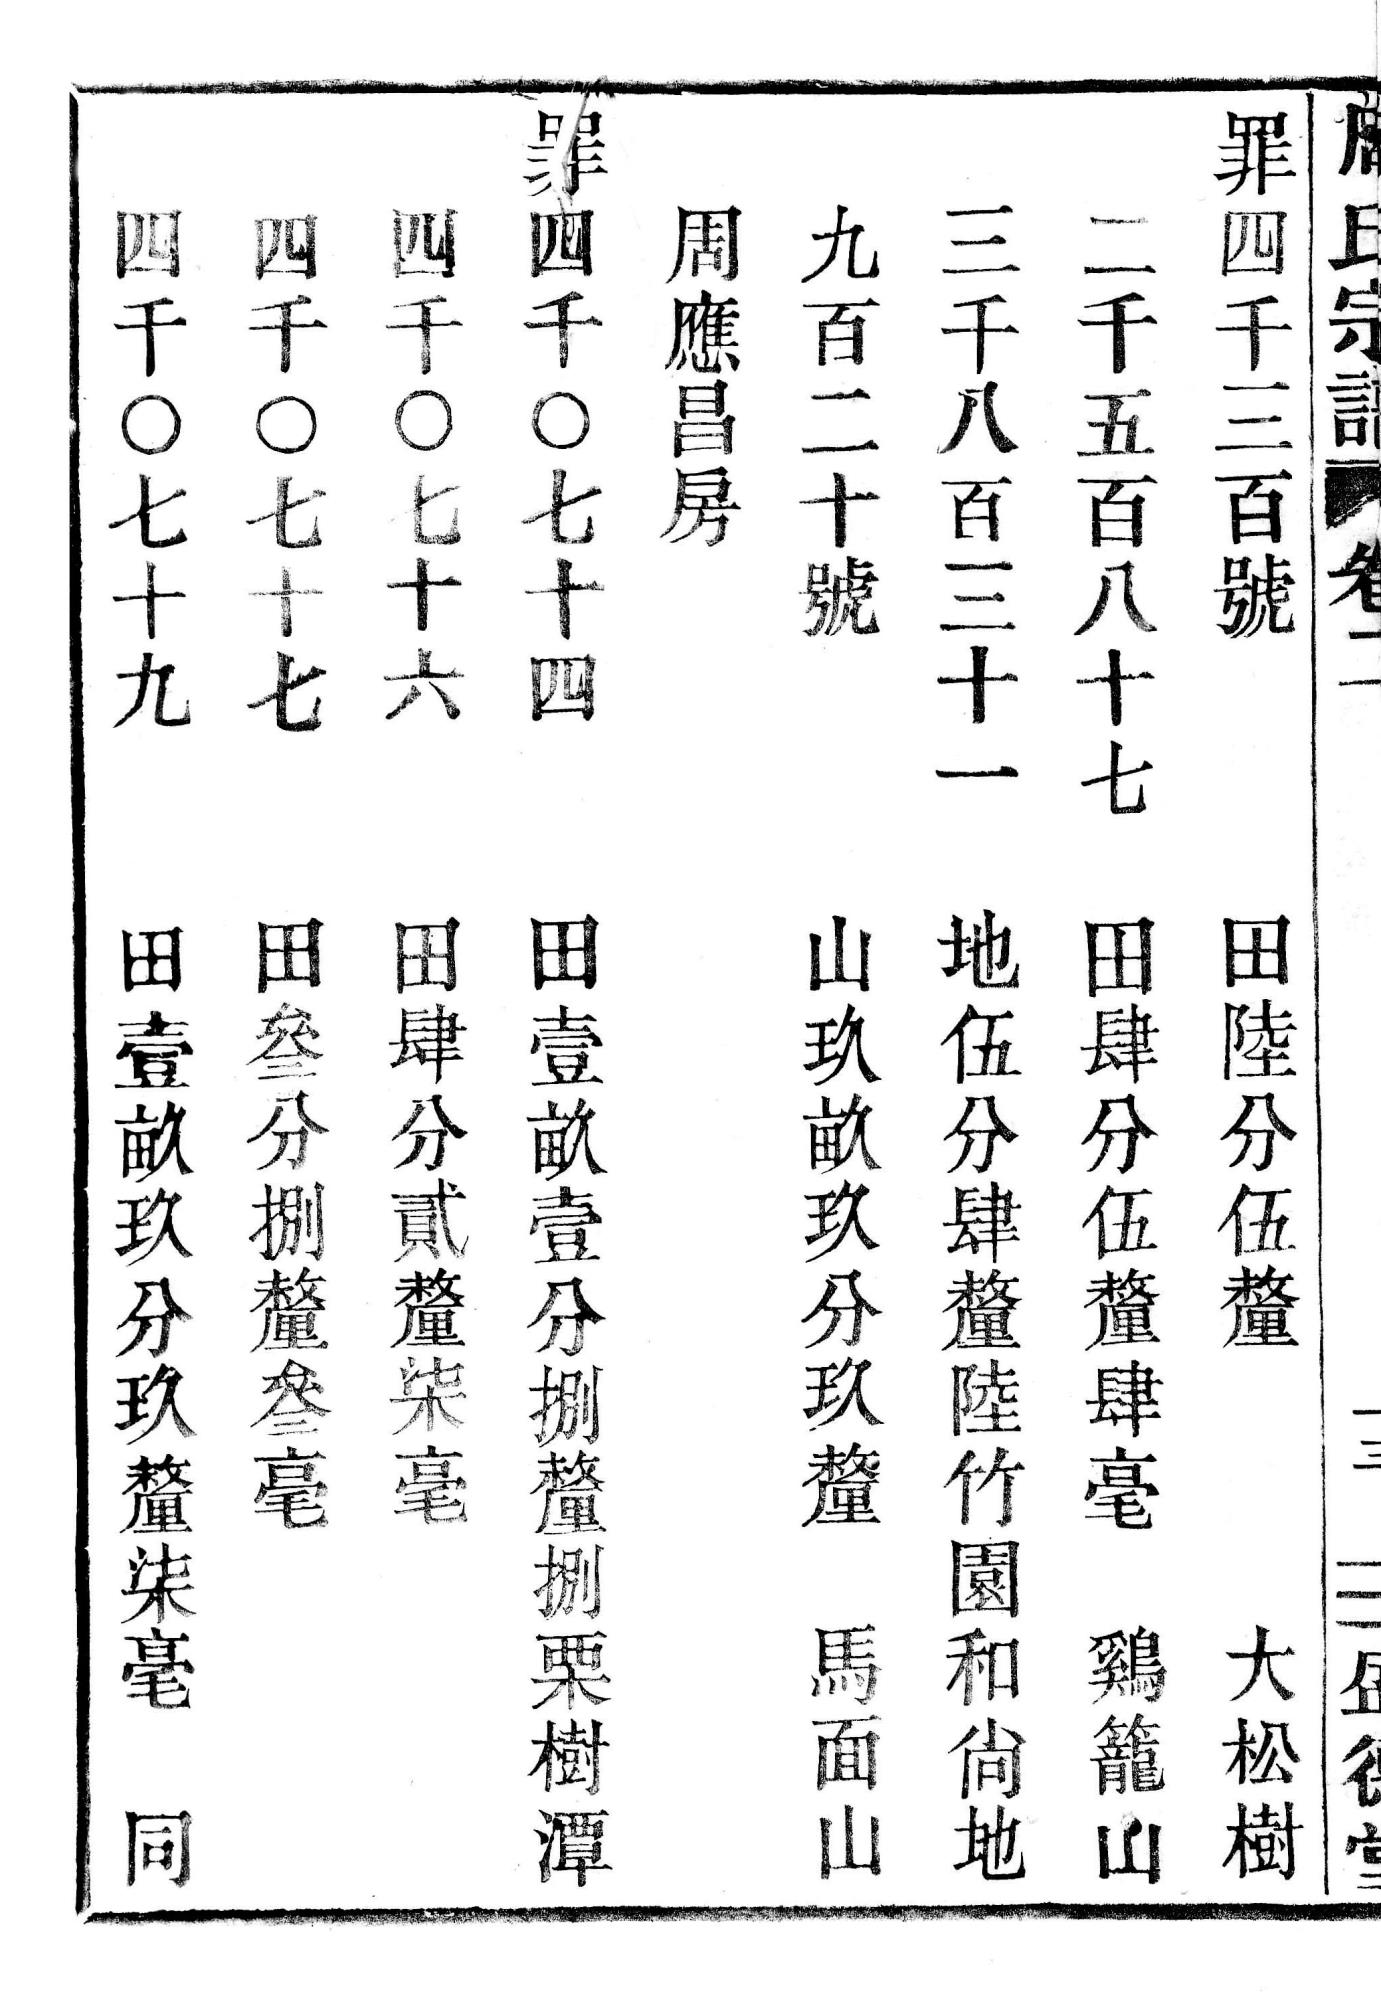 周氏宗譜 卷二 十三
罪四千三百號 田陸分伍釐 大松樹
二千五百八十七 田肆分伍釐肆毫 鷄籠山
三千八百三十一 地伍分肆釐陸竹園和尙地
九百二十號 山玖畝玖分玖釐 馬面山
周應昌房
罪四千〇七十四 田壹畝壹分捌釐捌栗樹潭
四千〇七十六 田肆分貳釐柒毫
四千〇七十七 田叄分捌釐叄毫
四千〇七十九 田壹畝玖分玖釐柒毫 同